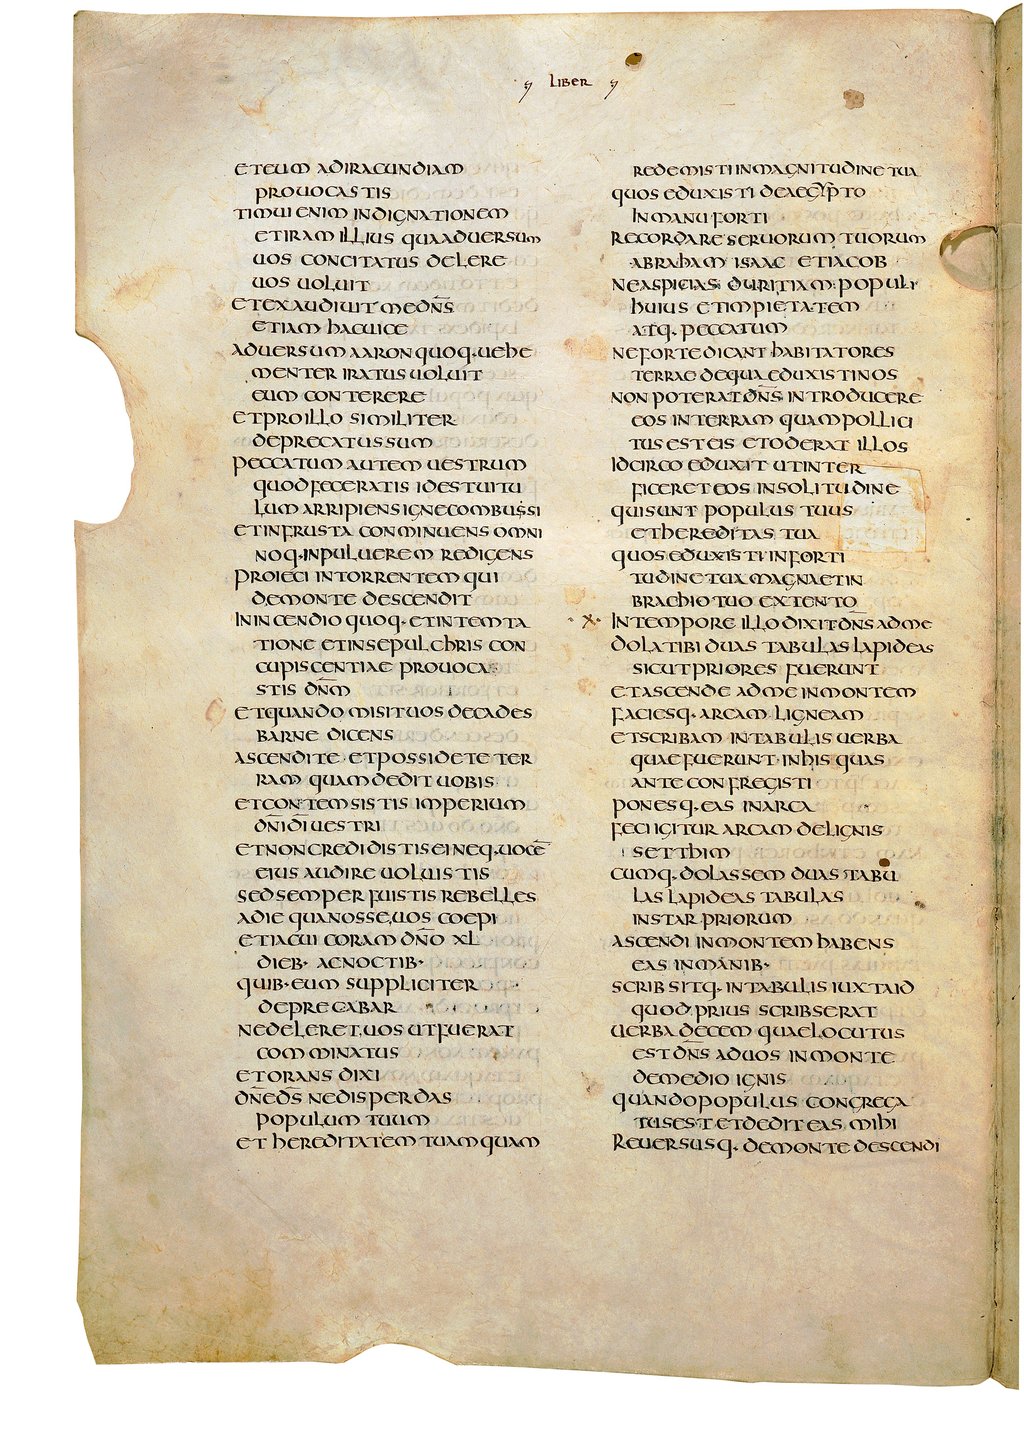 LIBER
ET EUM AD IRACUNDIAM
PROUOCASTIS
TIMUI ENIM INDIGNATIONEM
ET IRAM ILLIUS QUA ADUERSUM
UOS CONCITATUS DELERE
UOS UOLUIT
ET EXAUDIUIT ME DN̄S
ETIAM HAC UICE
ADUERSUM AARON QUOQ· UEHE
MENTER IRATUS UOLUIT
EUM CONTERERE
ET PRO ILLO SIMILITER
DEPRECATUS SUM
PECCATUM AUTEM UESTRUM
QUOD FECERATIS ID EST UITU
LUM ARRIPIENS IGNE COMBUSSI
ET IN FRUSTA CONMINUENS OMNI
NOQ· IN PULUEREM REDIGENS
PROIECI IN TORRENTEM QUI
DE MONTE DESCENDIT
IN INCENDIO QUOQ· ET IN TEMTA
TIONE ET IN SEPULCHRIS CON
CUPISCENTIAE PROUOCA
STIS DN̄M
ET QUANDO MISIT UOS DE CADES
BARNE DICENS
ASCENDITE ET POSSIDETE TER
RAM QUAM DEDIT UOBIS
ET CONTEMSISTIS IMPERIUM
DN̄I DĪ UESTRI
ET NON CREDIDISTIS EI NEQ· UOCĒ
EIUS AUDIRE UOLUISTIS
SED SEMPER FUISTIS REBELLES
A DIE QUA NOSSE UOS COEPI
ET IACUI CORAM DN̄O XL
DIEB· AC NOCTIB·
QUIB· EUM SUPPLICITER
DEPRECABAR
NE DELERET UOS UT FUERAT
COMMINATUS
ET ORANS DIXI
DN̄E DS̄ NE DISPERDAS
POPULUM TUUM
ET HEREDITATEM TUAM QUAM
REDEMISTI IN MAGNITUDINE TUA
QUOS EDUXISTI DE AEGYPTO
IN MANU FORTI
RECORDARE SERUORUM TUORUM
ABRAHAM ISAAC ET IACOB
NE ASPICIAS DURITIAM POPULI
HUIUS ET IMPIETATEM
ATQ· PECCATUM
NE FORTE DICANT HABITATORES
TERRAE DE QUA EDUXISTI NOS
NON POTERAT DN̄S INTRODUCERE
EOS IN TERRAM QUAM POLLICI
TUS EST EIS ET ODERAT ILLOS
IDCIRCO EDUXIT UT INTER
FICERET EOS IN SOLITUDINE
QUI SUNT POPULUS TUUS
ET HEREDITAS TUA
QUOS EDUXISTI IN FORTI
TUDINE TUA MAGNA ET IN
BRACHIO TUO EXTENTO
· X · IN TEMPORE ILLO DIXIT DN̄S AD ME
DOLA TIBI DUAS TABULAS LAPIDEAS
SICUT PRIORES FUERUNT
ET ASCENDE AD ME IN MONTEM
FACIESQ· ARCAM LIGNEAM
ET SCRIBAM IN TABULIS UERBA
QUAE FUERUNT IN HIS QUAS
ANTE CONFREGISTI
PONESQ· EAS IN ARCA
FECI IGITUR ARCAM DE LIGNIS
SETTHIM
CUMQ· DOLASSEM DUAS TABU
LAS LAPIDEAS TABULAS
INSTAR PRIORUM
ASCENDI IN MONTEM HABENS
EAS IN MANIB·
SCRIBSITQ· IN TABULIS IUXTA ID
QUOD PRIUS SCRIBSERAT
UERBA DECEM QUAE LOCUTUS
EST DN̄S AD UOS IN MONTE
DE MEDIO IGNIS
QUANDO POPULUS CONGREGA
TUS EST ET DEDIT EAS MIHI
REUERSUSQ· DE MONTE DESCENDI